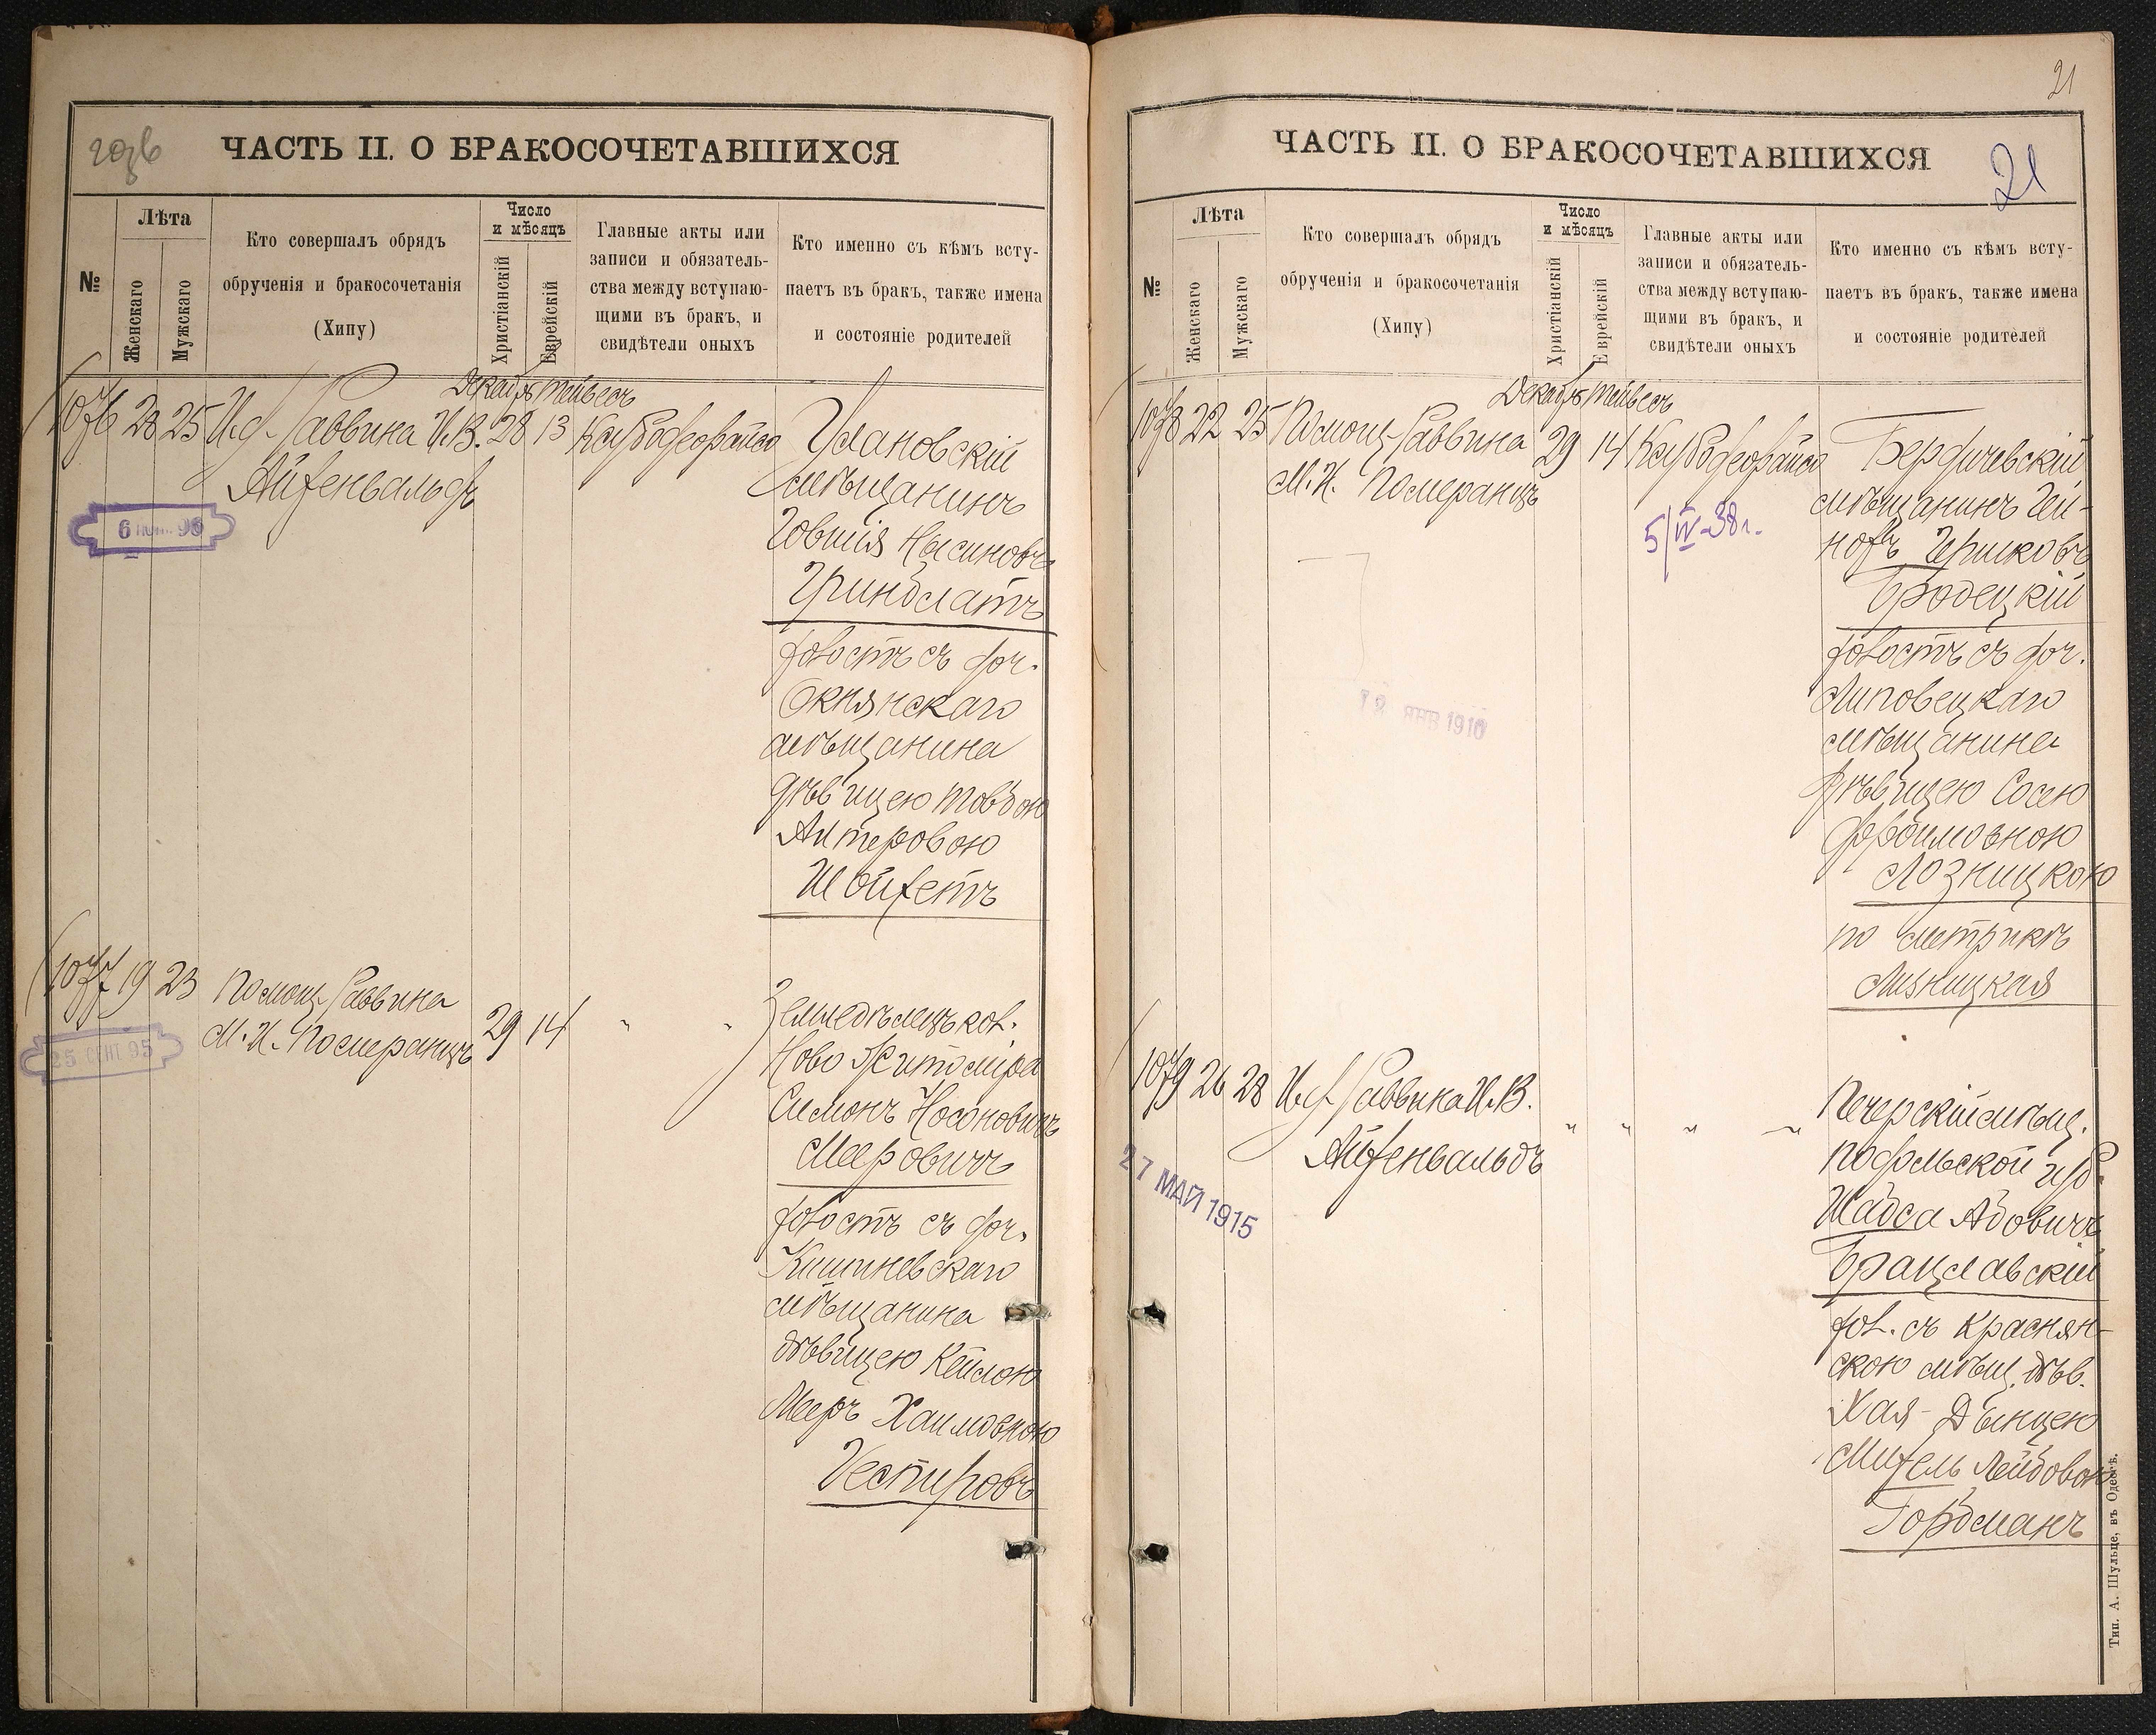 ЧАСТЬ II. О БРАКОСОЧЕТАВШИХСЯ
№
Лѣта
Женскаго
Мужскаго
Кто совершалъ обрядъ
обрученія и бракосочетанія
(Хипу)
Число
и мѣсяцъ
Христіанскій
Еврейскій
Главные акты или
записи и обязатель-
ства между вступаю-
щими въ бракъ, и
свидѣтели оныхъ
Кто именно съ кѣмъ всту-
паетъ въ бракъ, также имена
и состояніе родителей
Декабрь Тейвесъ
1076 28 25 И. д. Раввина И.В. 28 13
Айзенвальдъ
6 95
Улановскій
мѣщанинъ
Іовшія Нысиновъ
Гринблатъ
холостъ съ доч.
Окнянскаго
мѣщанина
дѣвицею Товбою
Алтеровою
Швейгетъ
1077 19 23 Помощ. Раввина
М. И. Померанцъ 29 14 " "
25 СЕНТ 95
Земледѣлецъ кол.
Ново Житоміра
Симонъ Носоновичъ
Мееровичъ
холостъ съ доч.
Кишиневскаго
мѣщанина
дѣвицею Кейлою
Мееръ Хаимовною
Нестировъ
21
21
ЧАСТЬ II. О БРАКОСОЧЕТАВШИХСЯ
№
Лѣта
Женскаго
Мужскаго
Кто совершалъ обрядъ
обрученія и бракосочетанія
(Хипу)
Число
и мѣсяцъ
Христіанскій
Еврейскій
Главные акты или
записи и обязатель-
ства между вступаю-
щими въ бракъ, и
свидѣтели оныхъ
Кто именно съ кѣмъ всту-
паетъ въ бракъ, также имена
и состояніе родителей
Декабрь Тейвесъ
1078 22 25 Помощ. Раввина 29 14
М. И. Померанцъ
5/IV-38 г.
12 ЯНВ 1910
Бердичевскій
мѣщанинъ Гей-
нохъ Гершковъ
Бродецкій
холостъ съ доч.
Липовецкаго
мѣщанина
дѣвицею Сосею
Фроимовною
Лозницкою
по метрикѣ
Лизницкая
1079 26 28 И. д. Раввина И. В.
Айзенвальдъ " " " "
27 МАЙ 1915
Печерскій мѣщ.
Подольской губ.
Шабса Абовичъ
Брацлавскій
хол. съ Краснян-
скою мѣщ. дѣв.
Хая-Двинцею
Лейбовою
Гордманъ
Тип. А. Шульце, въ Одессѣ.